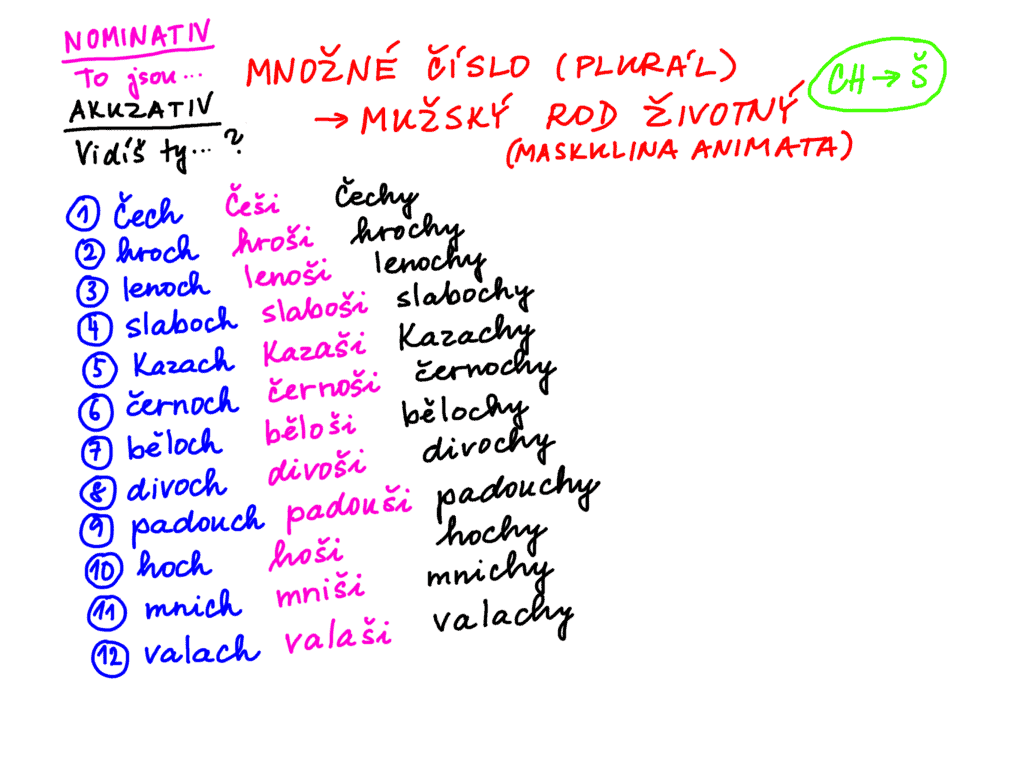 NOMINATIV
To jsou...
AKUZATIV
Vidíš ty... ?
MNOŽNÉ ČÍSLO (PLURÁL)
→ MUŽSKÝ ROD ŽIVOTNÝ
(MASKULINA ANIMATA)
CH → Š
1 Čech Češi Čechy
2 hroch hroši hrochy
3 lenoch lenoši lenochy
4 slaboch slaboši slabochy
5 Kazach Kazaši Kazachy
6 černoch černoši černochy
7 běloch běloši bělochy
8 divoch divoši divochy
9 padouch padouši padouchy
10 hoch hoši hochy
11 mnich mniši mnichy
12 valach valaši valachy